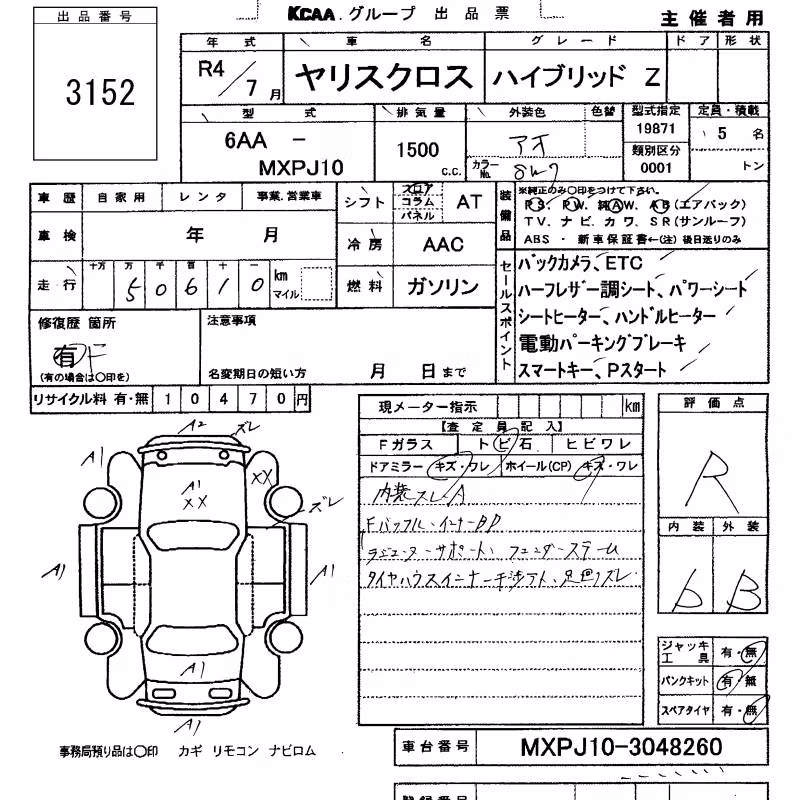 KCAA.グループ 出品票
主催者用
出品番号
3152
年式 車名 グレード ドア 形状
R4/7月 ヤリスクロス ハイブリッド Z
型式 排気量 外装色 色替 型式指定 定員・積載
6AA - MXPJ10 1500 c.c. アオ 19871 5名
カラーNo. 8W7 類別区分 0001 トン
車歴 自家用 レンタ 事業.営業車
シフト フロア コラム パネル AT
装備品 ※純正のみ○印をつけて下さい。
PS、PW、純AW、AB(エアバック)
TV、ナビ、カワ、SR(サンルーフ)
ABS・新車保証書←(注)後日送りのみ
車検 年 月
冷房 AAC
走行 十万 万 千 百 十 一 km マイル
50610
燃料 ガソリン
セールスポイント
バックカメラ、ETC
ハーフレザー調シート、パワーシート
シートヒーター、ハンドルヒーター
電動パーキングブレーキ
スマートキー、Pスタート
修復歴 箇所
有 F
(有の場合は○印を)
注意事項
名変期日の短い方 月 日まで
リサイクル料 有・無 10470円
現メーター指示 km
【査定員記入】
Fガラス トビ石 ヒビワレ
ドアミラー キズ・ワレ ホイール(CP) キズ・ワレ
内装スレA
ラジエターサポート、フェンダーステーム
タイヤハウスインナー干渉アト、足廻りズレ
評価点
R
内装 外装
b B
ジャッキ工具 有・無
パンクキット 有・無
スペアタイヤ 有・無
A2 ズレ
A1
A1
XX
XX
ズレ
A1
A1
A1
A1
事務局預り品は○印 カギ リモコン ナビロム
車台番号 MXPJ10-3048260